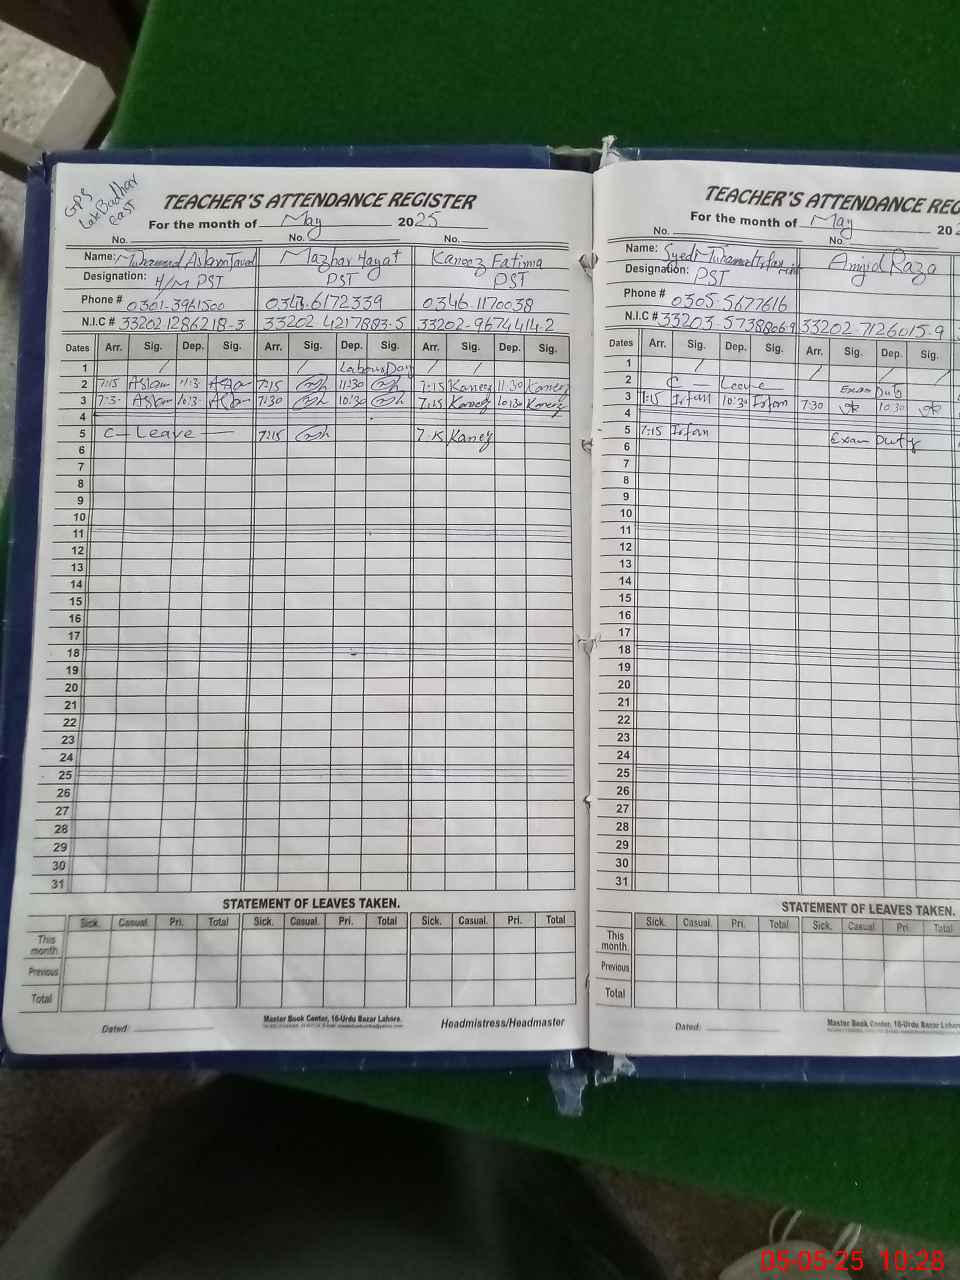 GPS
East
TEACHER'S ATTENDANCE REGISTER
For the month of May 2025
No. No. No.
Name: Aslam Mazhar Hayat Kaneez Fatima
Designation: H/M PST PST PST
Phone # 0301-3961500 0343-6172339 0346-1170038
N.I.C # 33202-1286218-3 33202 4217883-5 33202-9674414-2
Dates Arr. Sig. Dep. Sig. Arr. Sig. Dep. Sig. Arr. Sig. Dep. Sig.
1 / / Labour Day / /
2 7:15 Aslam 11:3 7:15 11:30 7:15 Kaneez 11:30 Kaneez
3 7:3 Aslam 10:3 7:30 10:30 7:15 Kaneez 10:30 Kaneez
4
5 C - Leave 7:15 7:15 Kaneez
6
7
8
9
10
11
12
13
14
15
16
17
18
19
20
21
22
23
24
25
26
27
28
29
30
31
STATEMENT OF LEAVES TAKEN.
Sick. Casual. Pri. Total Sick. Casual. Pri. Total Sick. Casual. Pri. Total
This month.
Previous
Total
Dated:
Master Book Center, 16-Urdu Bazar Lahore.
Headmistress/Headmaster
TEACHER'S ATTENDANCE REG
For the month of May 202
No. No.
Name: Syed Amjid Raza
Designation: PST
Phone # 0305-5677616
N.I.C # 33203-5738806-9 33202-7126015-9
Dates Arr. Sig. Dep. Sig. Arr. Sig. Dep. Sig.
1 / / /
2 C - Leave Exam Duty
3 7:15 Irfan 10:30 Irfan 7:30 10:30
4
5 7:15 Irfan Exam Duty
6
7
8
9
10
11
12
13
14
15
16
17
18
19
20
21
22
23
24
25
26
27
28
29
30
31
STATEMENT OF LEAVES TAKEN.
Sick. Casual. Pri. Total Sick. Casual. Pri. Total
This month.
Previous
Total
Dated:
Master Book Center, 16-Urdu Bazar Lahore
05-05-25 10:28